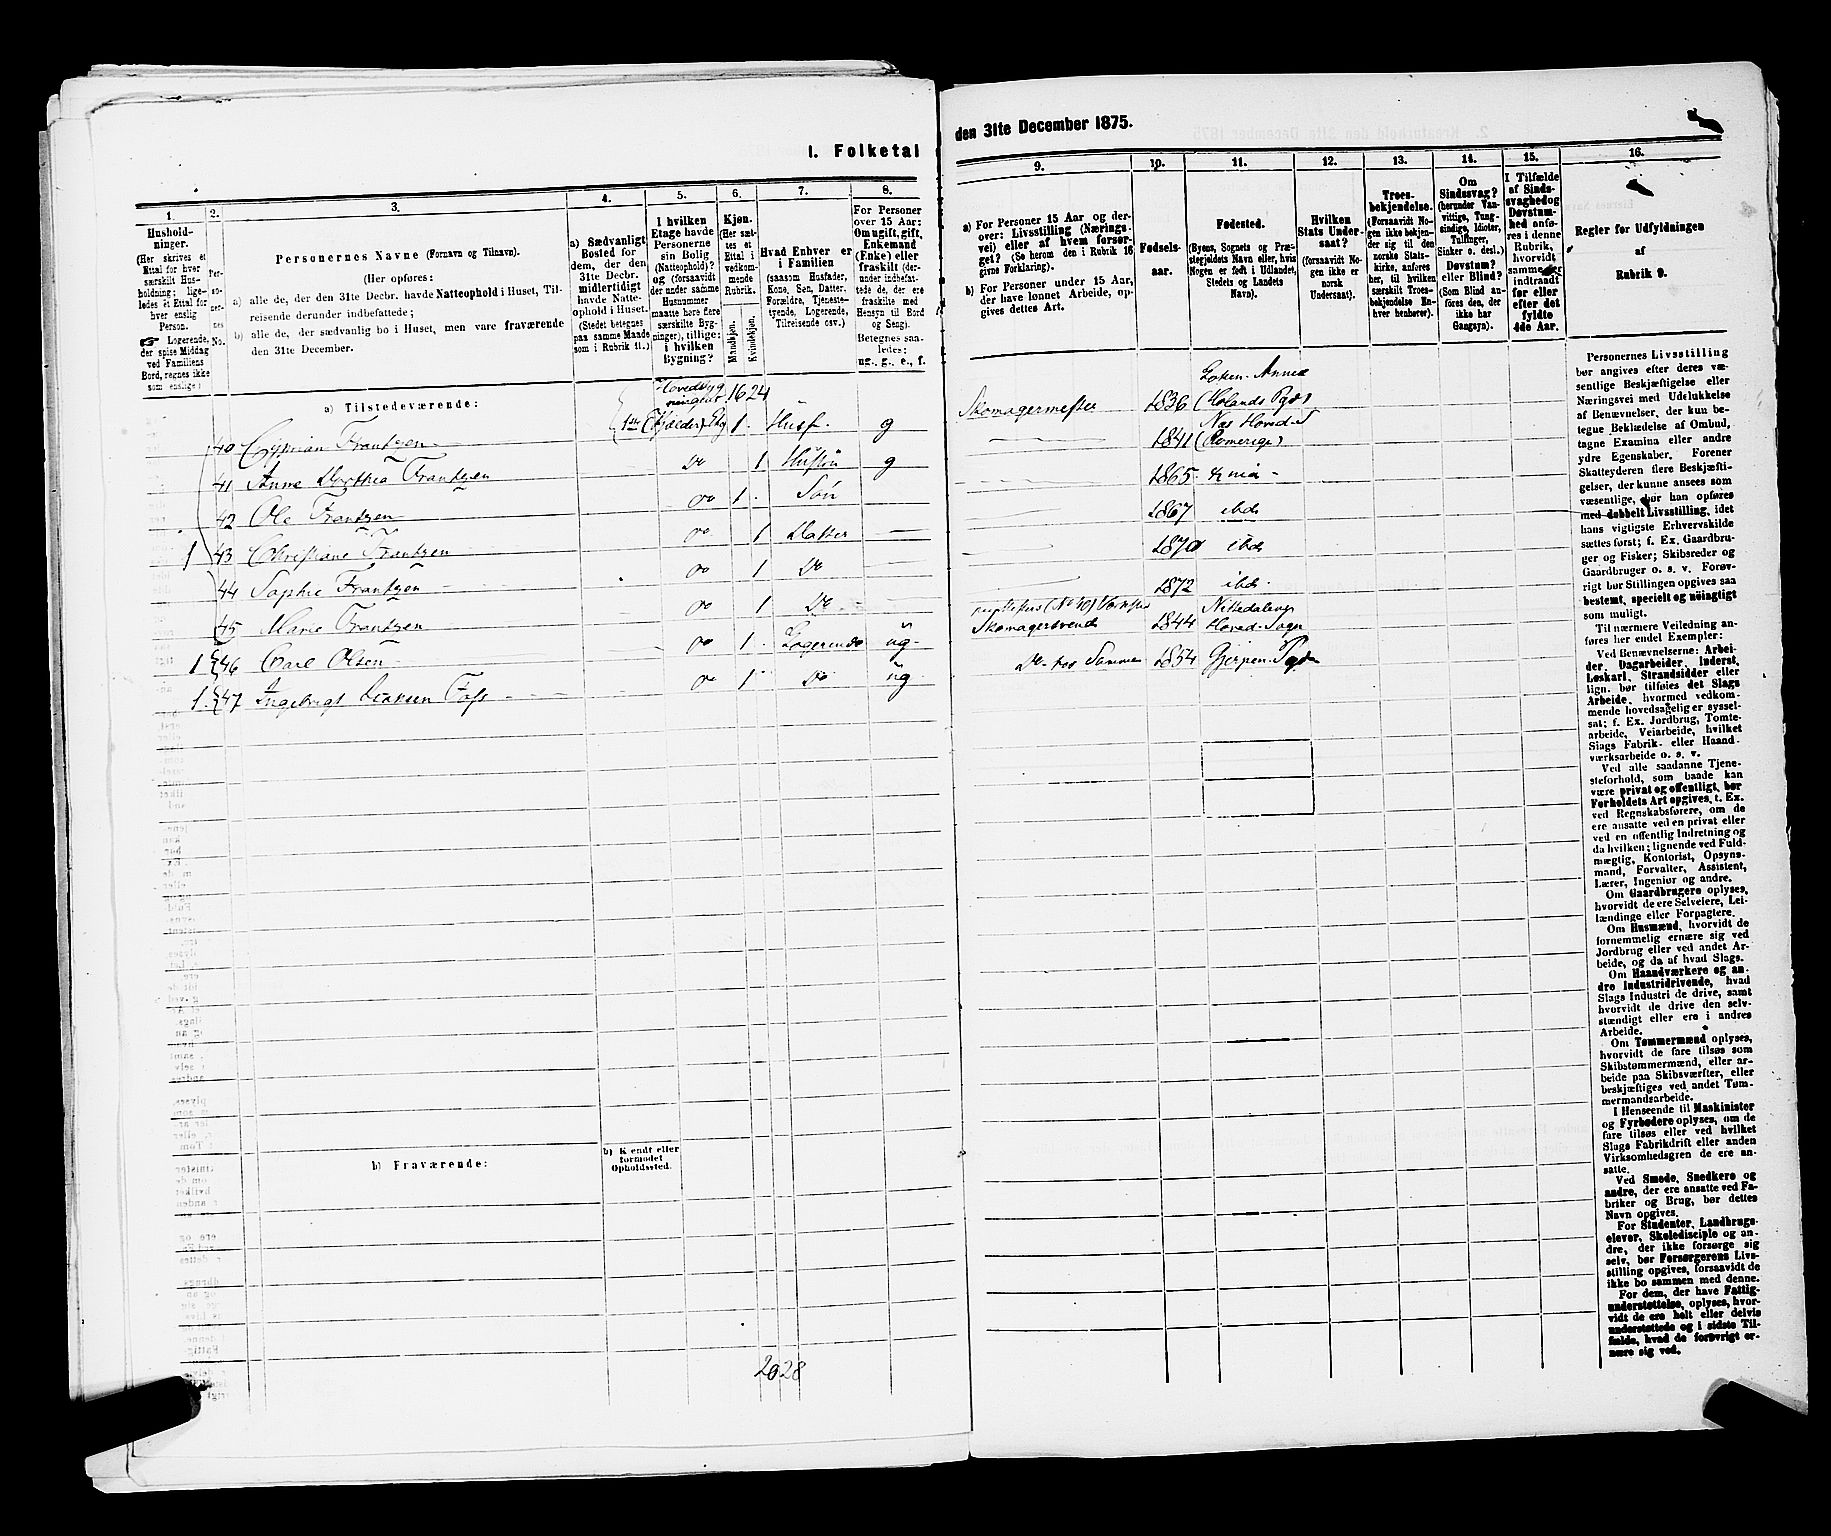 I. Folketal
den 31te December 1875.
1.
2.
3.
4.
5.
6.
7.
8.
9.
10.
11.
12.
13.
14.
15.
16.
Hushold-
ninger.
(Her skrives et
Ettal for hver
særskilt Hus-
holdning; lige-
ledes et Ettal for
hver enslig
Person.
☛ Logerende,
der spise Middag
ved Familiens
Bord, regnes ikke
som enslige)
Per-
so-
ner-
nes
No.
Personernes Navne (Fornavn og Tilnavn).
(Her opføres:
a) alle de, der den 31te Decbr. havde Natteophold i Huset, Til-
reisende derunder indbefattede;
b) alle de, der sædvanlig bo i Huset, men vare fraværende
den 31te December.
a) Sædvanligt
Bosted for
dem, der den
31te Decbr.
midlertidigt
havde Natte-
ophold i Huset.
(Stedet betegnes
paa samme Maade
som i Rubrik 11.)
I hvilken
Etage havde
Personerne
sin Bolig
(Natteophold)?
og (forsaavidt
der under samme
Husnummer
maatte høre flere
særskilte Byg-
ninger), tillige:
i hvilken
Bygning?
Kjøn.
(Her sæt-
tes et
Ettal i
vedkom-
mende
Rubrik.
Mandkjøn.
Kvindekjøn.
Hvad Enhver er
i Familien
(saasom Husfader,
Kone, Søn, Datter,
Forældre, Tjeneste-
tyende, Logerende,
Tilreisende osv.)
For Personer
over 15 Aar:
Om ugift, gift,
Enkemand
(Enke) eller
fraskilt (der-
under indbefat-
tede de, der ere
fraskilte med
Hensyn til Bord
og Seng).
Betegnes saa-
ledes:
ug., g., e., f.
a) For Personer 15 Aar og der-
over: Livsstilling (Nærings-
vei) eller af hvem forsør-
get? (Se herom den i Rubrik 16
givne Forklaring).
b) For Personer under 15 Aar,
der have lønnet Arbeide, op-
gives dettes Art.
Fødsels-
aar.
Fødested.
(Byens, Sognets og Præ-
stegjeldets Navn eller, hvis
Nogen er født i Udlandet,
Stedets og Landets
Navn).
Hvilken
Stats Under-
saat?
(forsaavidt No-
gen ikke er
norsk
Undersaat).
Troes-
bekjendelse.
(Forsaavidt No-
gen ikke bekjen-
der sig til den
norske Stats-
kirke, anføres
her, til hvilken
særskilt Troes-
bekjendelse En-
hver henhører).
Om
Sindssvag?
(herunder Van-
vittige, Tung-
sindige, Idioter,
Tullinger,
Sinker o. desl.)
Døvstum?
eller Blind?
(Som Blind an-
føres den, der
ikke har
Gangsyn).
I Tilfælde
af Sinds-
svaghed og
Døvstum-
hed anfø-
res i denne
Rubrik,
hvorvidt
samme er
indtraadt
før eller
efter det
fyldte
4de Aar.
Regler for Udfyldningen
af
Rubrik 9.
a) Tilstedeværende:
Hovedbyg
ningen
16 24
40 Cyprian Frantzen 1ste (Kjælder) Etg 1 Husf. g Skomagermester 1836 (Hølands Pgd)
41 Anne Dorthea Frantzen Do 1 Hustru g 1841 (Romerige)
42 Ole Frantzen Do 1 Søn 1865 Xnia
1 43 Christiane Frantzen Do 1 Datter 1867 ibd
44 Sophie Frantzen Do 1 Do 1870 ibd
45 Marie Frantzen Do 1 Do 1872 ibd.
1 46 Carl Olsen Do 1 Logerende ug. Skomagersvend 1844 Hoved-Sogn
1 47 Ingebrigt Do 1 Do ug Do hos Samme 1854 Gjerpen Pgd
b) Fraværende:
b) Kjendt eller
formodet
Opholdssted.
2028
Personernes Livsstilling
bør angives efter deres væ-
sentlige Beskjæftigelse eller
Næringsvei med Udelukkelse
af Benævnelser, der kun be-
tegne Beklædelse af Ombud,
tagne Examina eller andre
ydre Egenskaber. Forener
Skatteyderen flere Beskjæfti-
gelser, der kunne ansees som
væsentlige, bør han opføres
med dobbelt Livsstilling, idet
hans vigtigste Erhvervskilde
sættes først; f. Ex. Gaardbru-
ger og Fisker; Skibsreder og
Gaardbruger o. s. v. Forøv-
rigt bør Stillingen opgives saa
bestemt, specielt og nöiagtigt
som muligt.
Til nærmere Veiledning an-
føres her endel Exempler:
Ved Benævnelserne: Arbei-
der, Dagarbeider, Inderst,
Løskarl, Strandsidder eller
lign. bør tilføies det Slags
Arbeide, hvormed vedkom-
mende hovedsagelig er syssel-
sat; f. Ex. Jordbrug, Tomte-
arbeide, Veiarbeide, hvilket
Slags Fabrik- eller Haand-
værksarbeide o. s. v.
Ved alle saadanne Tjene-
steforhold, som baade kan
være privat og offentligt, bør
Forholdets Art opgives, t. Ex.
ved Regnskabsførere, om de
ere ansatte ved en privat eller
ved en offentlig Indretning og
da hvilken; lignende ved Fuld-
mægtig, Kontorist, Opsyns-
mand, Forvalter, Assistent,
Lærer, Ingeniør og andre.
Om Gaardbrugere oplyses,
hvorvidt de ere Selveiere, Lei-
lændinge eller Forpagtere.
Om Husmænd, hvorvidt de
fornemmelig ernære sig ved
Jordbrug eller ved andet Ar-
beide, og da af hvad Slags.
Om Haandværkere og an-
dre Industridrivende, hvad
Slags Industri de drive, samt
hvorvidt de drive den selv-
stændigt eller ere i andres
Arbeide.
Om Tømmermænd oplyses,
hvorvidt de fare tilsøs som
Skibstømmermænd, eller ar-
beide paa Skibsværfter, eller
beskjæftiges ved andet Tøm-
mermandsarbeide.
I Henseende til Maskinister
og Fyrbødere oplyses, om de
fare tilsøs eller ved hvilket
Slags Fabrikdrift eller anden
Virksomhedsgren de ere an-
satte.
Ved Smede, Snedkere og
andre, der ere ansatte ved Fa-
briker og Brug, bør dettes
Navn opgives.
For Studenter, Landbrugs-
elever, Skoledisciple og an-
dre, der ikke forsørge sig
selv, bør Forsørgerens Livs-
stilling opgives, forsaavidt de
ikke bo sammen med denne.
For dem, der have Fattig-
understøttelse, oplyses, hvor-
vidt de ere helt eller delvis
understøttede og i sidste Til-
fælde, hvad de forøvrigt er-
nære sig ved.